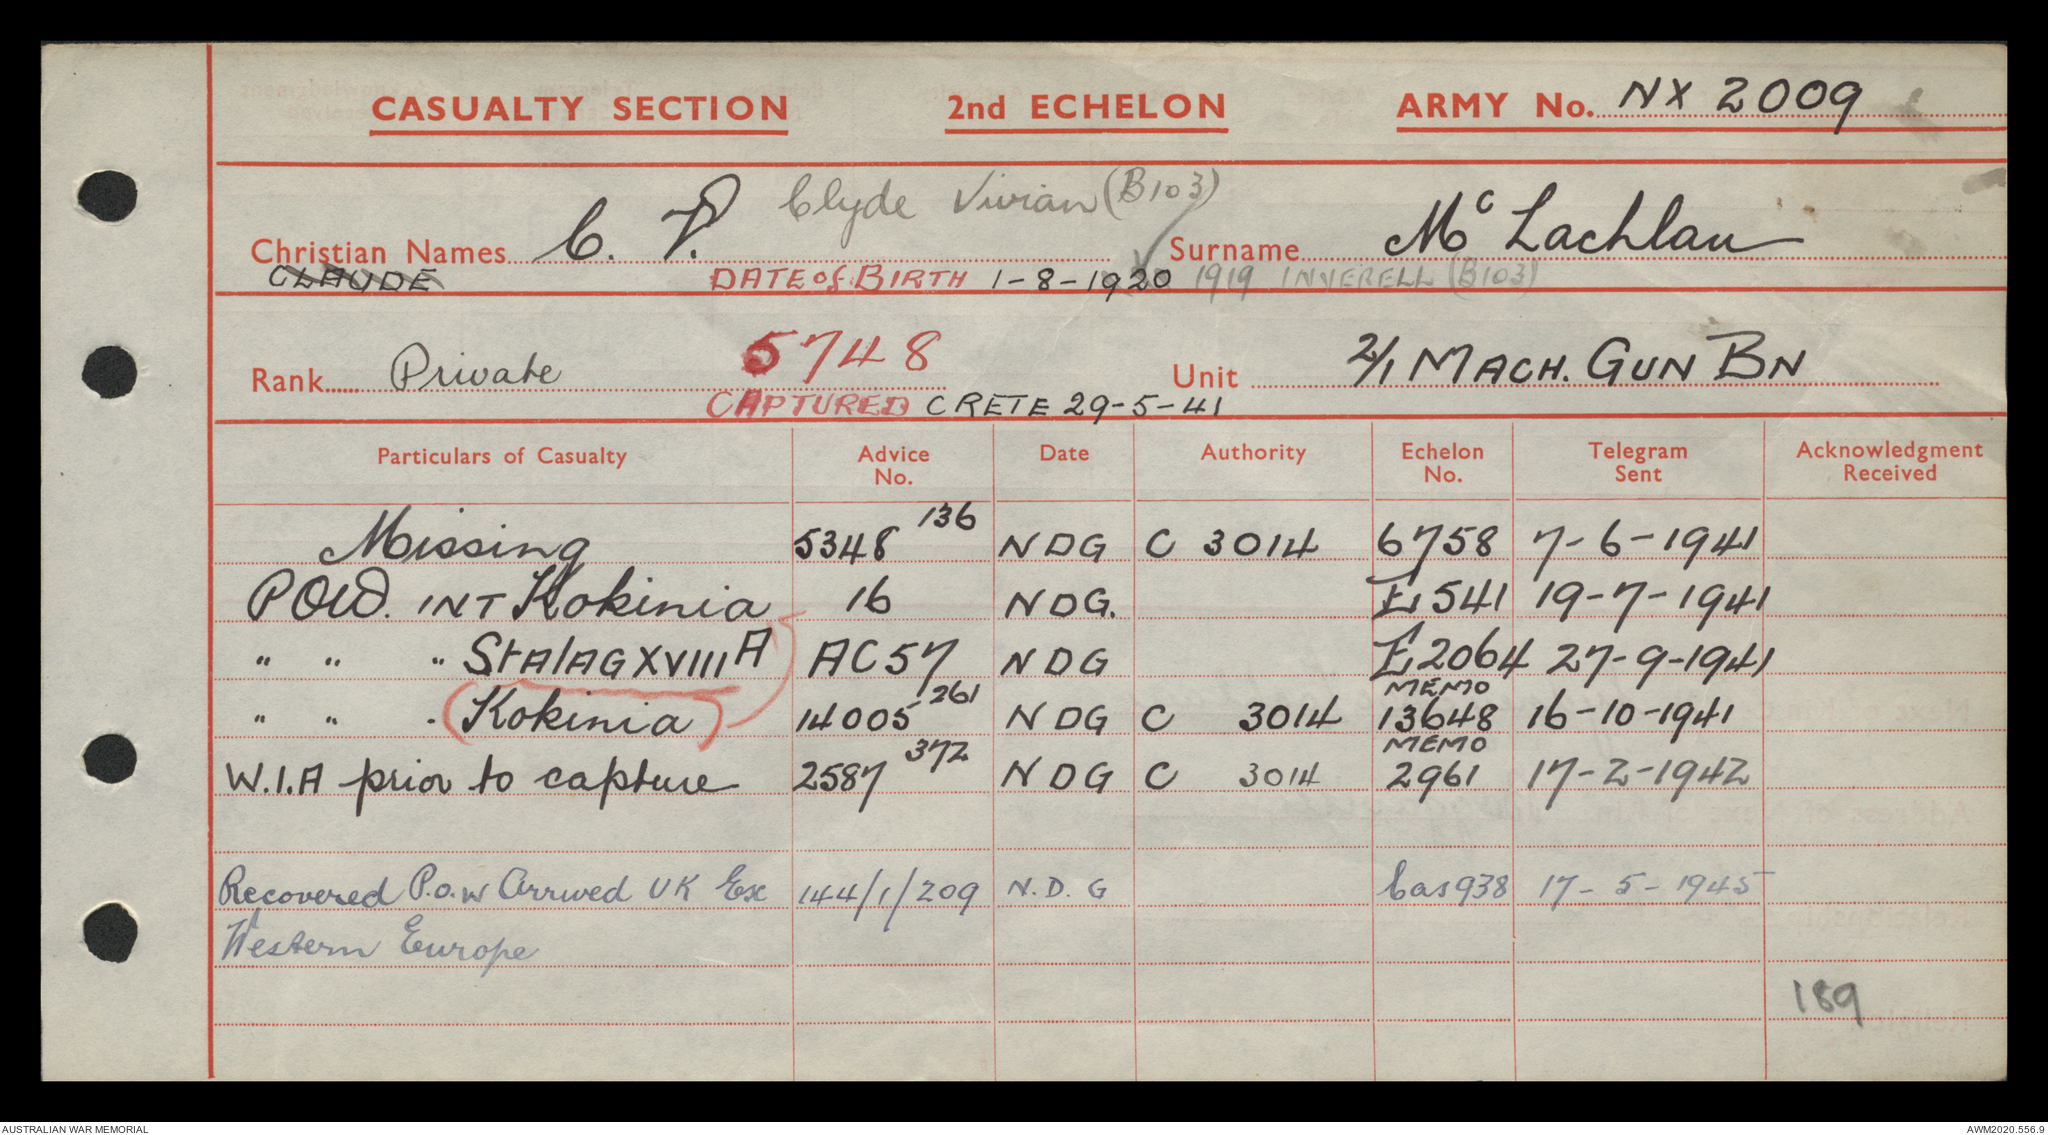 CASUALTY SECTION 2nd ECHELON ARMY No. NX 2009
Clyde Vivian (B103)
Christian Names C. V. Surname McLachlan
CLAUDE DATE of BIRTH 1-8-1920 1919 INVERELL (B103)
5748
Rank Private Unit 2/1 MACH. GUN BN
CAPTURED CRETE 29-5-41
Particulars of Casualty Advice No. Date Authority Echelon No. Telegram Sent Acknowledgment Received
Missing 5348 136 NDG C 3014 6758 7-6-1941
POW. INT Kokinia 16 NDG. E541 19-7-1941
" " " StAlAG XVIII A AC57 NDG E2064 27-9-1941
" " . (Kokinia) 14005 261 NDG C 3014 MEMO 13648 16-10-1941
W.I.A prior to capture 2587 372 NDG C 3014 MEMO 2961 17-2-1942
Recovered P.O.W Arrived UK Ex 144/1/209 N.D.G Cas938 17-5-1945
Western Europe
189
AUSTRALIAN WAR MEMORIAL AWM2020.556.9